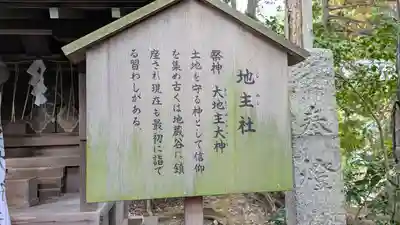 地主社
祭神 大地主大神
土地を守る神として信仰
を集め古くは地蔵谷に鎮
座され現在も最初に詣で
る習わしがある。
奉燈